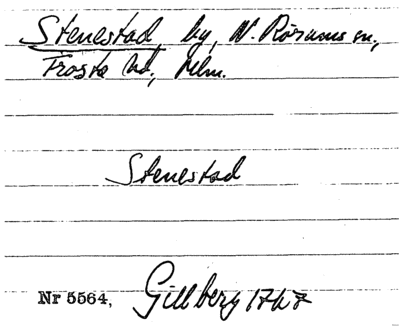 Stenestad, by, N. Rörums sn,
Frosta hd, Mlm.
Stenestad
Nr 5564, Gillberg 1767